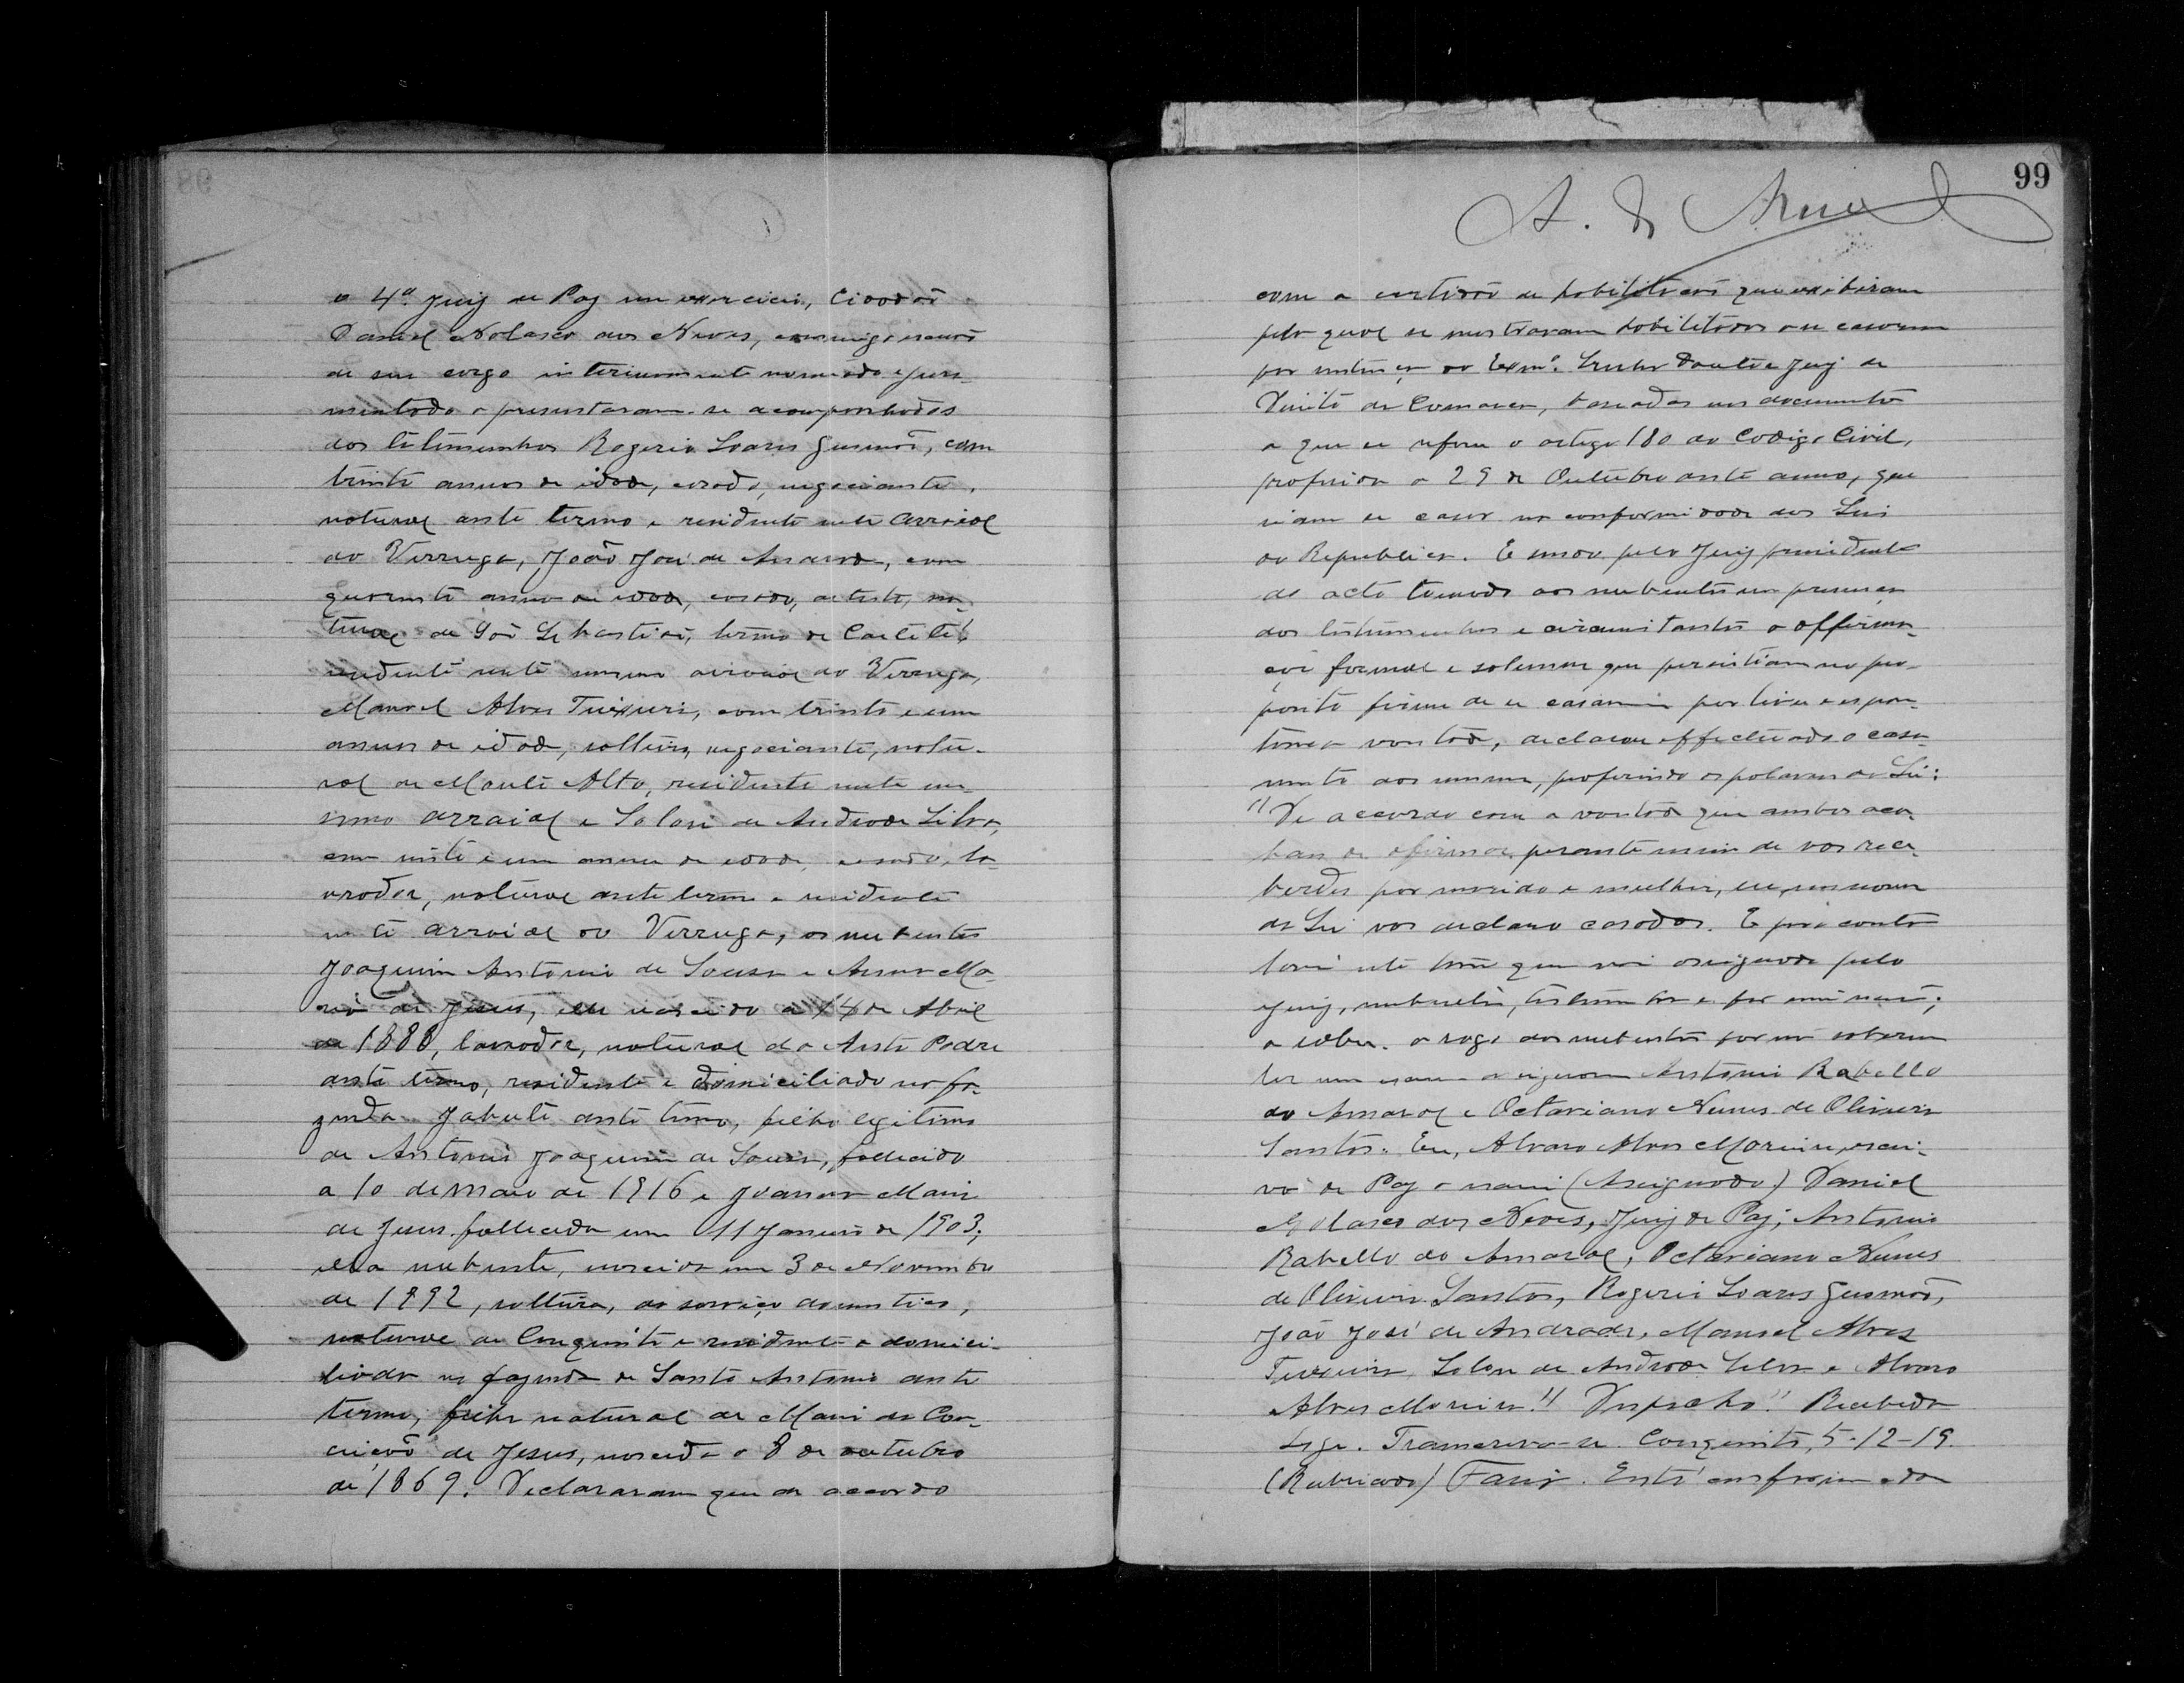 o 4º Juiz de Paz em exercicio, Cidadão
Daniel Nolasco das Neves, commigo escrivão
de seu cargo interinamente nomeado e jura-
mentado apresentaram-se acompanhados
das testemunhas Rogerio Soares Gusmão, com
trinta annos de idade, casado, negociante,
natural deste termo e residente neste arraial
do Verruga, João José de Andrade, com
quarenta annos de idade, casado, artista, na-
tural de São Sebastião, termo de Caeteté,
residente neste mesmo arraial do Verruga,
Manoel Alves Teixeira, com trinta e um
annos de idade, solteiro, negociante, natu-
ral de Monte Alto, residente neste me-
smo arraial e Solon de Andrade Silva,
com vinte e um annos de idade, casado, la-
vrador, natural deste termo e residente
neste arraial do Verruga, os nubentes
Joaquim Antonio de Sousa e Anna Ma-
ria de Jesus, elle nascido a 14 de Abril
de 1888, lavrador, natural da Pedra
deste termo, residente e domiciliado na fa-
zenda Jabuti deste termo, filho legitimo
de Antonio Joaquim de Sousa, fallecido
a 10 de maio de 1916 e Joanna Maria
de Jesus, fallecida em 11 Janeiro de 1903;
ella nubente, nascida em 3 de Novembro
de 1892, solteira, do serviço domestico,
natural de Conquista e residente e domici-
liada na fazenda de Santo Antonio deste
termo, filha natural de Maria da Con-
ceição de Jesus, nascida a 8 de outubro
de 1869. Declararam que de accordo
99
A. do Amaral
com a certidão de habilitação que exibiram
pela qual se mostravam habilitados a se casarem
por sentença do Exmº. Senhor Doutor Juiz de
Direito da Comarca, baseadas nos documentos
a que se refere o artigo 180 do Codigo Civil,
proferida a 29 de Outubro deste anno, que
viam se casar na conformidade das Leis
da Republica. E sendo pelo Juiz presidente
do acto tomado aos nubentes em presença
das testemunhas e circumstantes a affirma-
ção formal e solemne que persistiam no pro-
posito firme de se casarem por livre e espon-
tanea vontade, declarou effectuado o casa-
mento dos mesmos, proferindo as palavras da Lei:
"De accordo com a vontade que ambos aca-
bam de afirmar perante mim de vos rece-
berdes por marido e mulher, eu, em nome
da Lei vos declaro casados. E para constar
lavrei este termo que vai assignado pelo
Juiz, nubentes, testemunhas e por mim escrivão;
a saber: a rogo dos nubentes por não saberem
ler nem escrever assignam Antonio Rabello
do Amaral e Octaviano Nunes de Oliveira
Santos. Eu, Alvaro Alves Moreira, escri-
vão de Paz o escrevi (Assignado) Daniel
Nolasco das Neves, Juiz de Paz; Antonio
Rabello do Amaral, Octaviano Nunes
de Oliveira Santos, Rogerio Soares Gusmão,
João José de Andrade, Manoel Alves
Teixeira, Solon de Andrade Silva e Alvaro
Alves Moreira." Despacho: "Recebida
hoje. Transcreva-se. Conquista, 5-12-19.
(Rubricado) Faria. Está conforme e dou